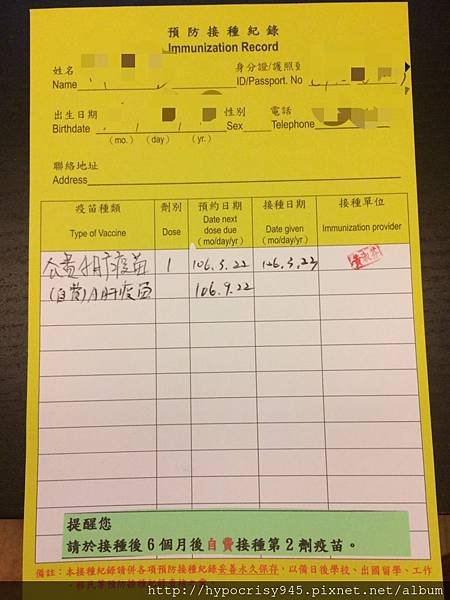 預防接種紀錄
Immunization Record
姓名 身分證/護照
Name ID/Passport. No
出生日期 性別 電話
Birthdate Sex Telephone
(mo.) (day) (yr.)
聯絡地址
Address
疫苗種類 劑別 預約日期 接種日期 接種單位
Type of Vaccine Dose Date next dose due (mo/day/yr) Date given (mo/day/yr) Immunization provider
公費A肝疫苗 1 106.3.22 106.3.22
(自費)A肝疫苗 106.9.22
提醒您
請於接種後6個月後自費接種第2劑疫苗。
備註:本接種紀錄請併各項預防接種紀錄妥善永久保存,以備日後學校、出國留學、工作
http://hypocrisy945.pixnet.net/album